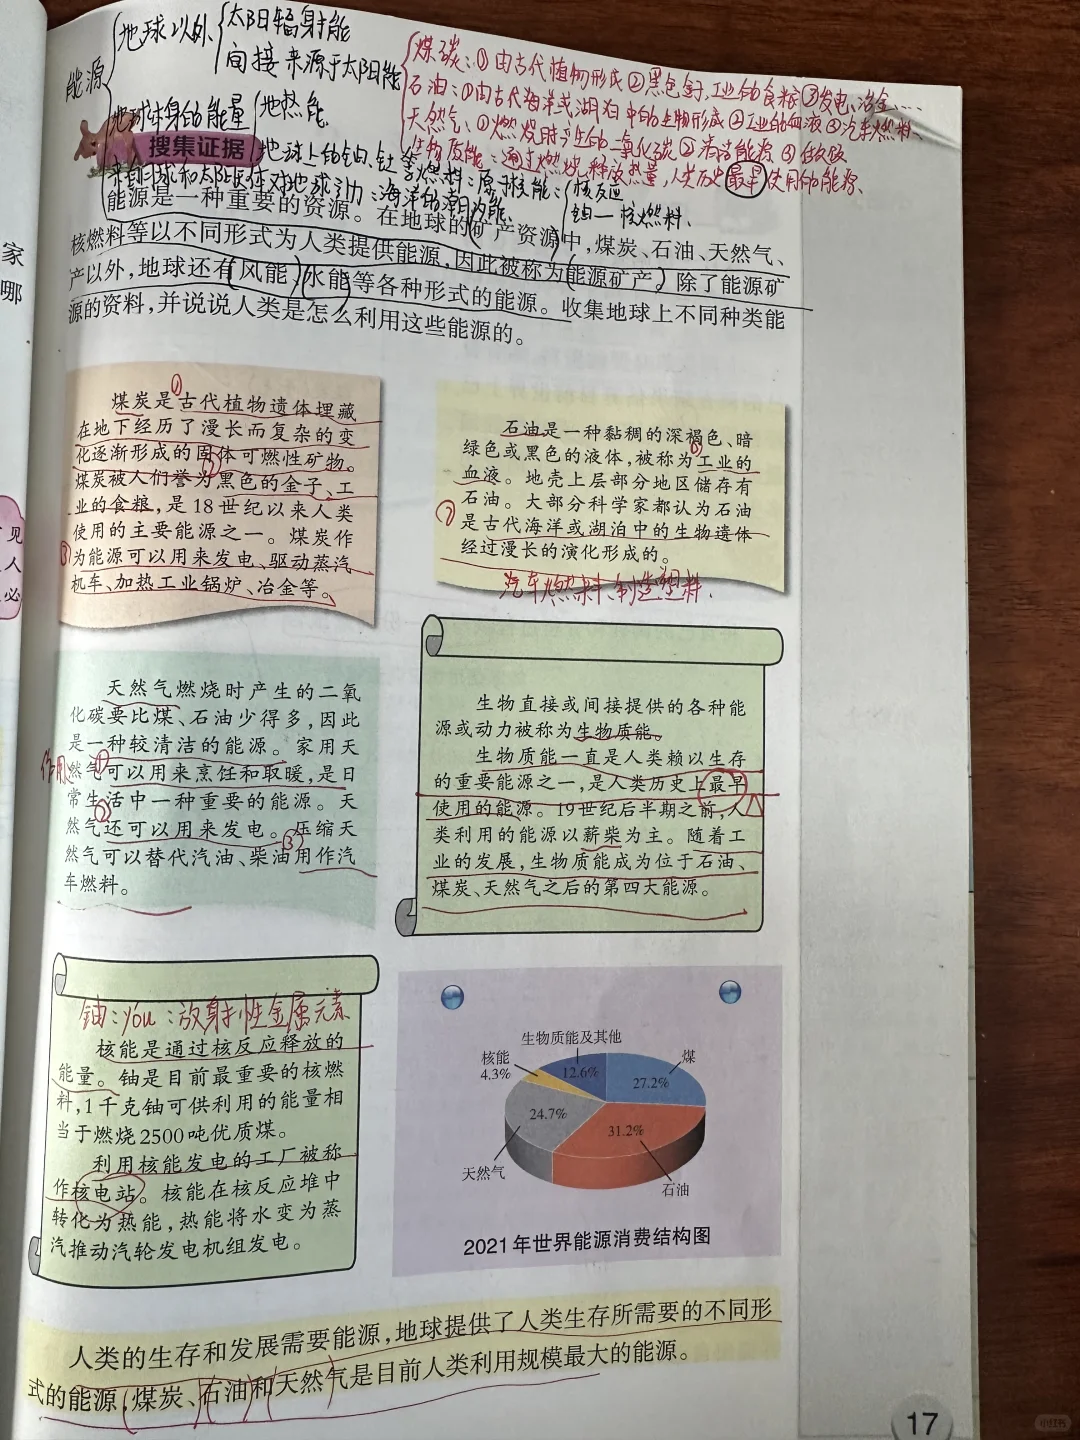 能源
地球以外
太阳辐射能
间接来源于太阳能
煤碳:①由古代植物形成②黑色金子,工业的食粮③发电、冶金……
石油:①由古代海洋或湖泊中的生物形成②工业的血液③汽车燃料
天然气:①燃烧时产生的二氧化碳②清洁能源③做饭
生物质能:通过燃烧释放热量,人类历史最早使用的能源.
地球本身的能量
地热能
地球上的铀、钍等燃料:原子核能:
核反应
铀—核燃料.
来自月球和太阳天体对地球引力:海洋的潮汐能.
搜集证据
能源是一种重要的资源。在地球的矿产资源中,煤炭、石油、天然气、
核燃料等以不同形式为人类提供能源,因此被称为能源矿产。除了能源矿
产以外,地球还有风能、水能等各种形式的能源。收集地球上不同种类能
源的资料,并说说人类是怎么利用这些能源的。
家
哪
见
人
必
①
煤炭是古代植物遗体埋藏
在地下经历了漫长而复杂的变
化逐渐形成的固体可燃性矿物。
②
煤炭被人们誉为黑色的金子、工
业的食粮,是18世纪以来人类
使用的主要能源之一。煤炭作
③
为能源可以用来发电、驱动蒸汽
机车、加热工业锅炉、冶金等。
石油是一种黏稠的深褐色、暗
绿色或黑色的液体,被称为工业的
血液。地壳上层部分地区储存有
石油。大部分科学家都认为石油
是古代海洋或湖泊中的生物遗体
经过漫长的演化形成的。
汽车燃料、制造塑料.
天然气燃烧时产生的二氧
化碳要比煤、石油少得多,因此
是一种较清洁的能源。家用天
作用
①
然气可以用来烹饪和取暖,是日
常生活中一种重要的能源。天
②
然气还可以用来发电。压缩天
③
然气可以替代汽油、柴油用作汽
车燃料。
生物直接或间接提供的各种能
源或动力被称为生物质能。
生物质能一直是人类赖以生存
的重要能源之一,是人类历史上最早
使用的能源。19世纪后半期之前,人
类利用的能源以薪柴为主。随着工
业的发展,生物质能成为位于石油、
煤炭、天然气之后的第四大能源。
铀:yóu:放射性金属元素
核能是通过核反应释放的
能量。铀是目前最重要的核燃
料,1千克铀可供利用的能量相
当于燃烧2500吨优质煤。
利用核能发电的工厂被称
作核电站。核能在核反应堆中
转化为热能,热能将水变为蒸
汽推动汽轮发电机组发电。
生物质能及其他
12.6%
核能
4.3%
煤
27.2%
24.7%
31.2%
天然气
石油
2021年世界能源消费结构图
人类的生存和发展需要能源,地球提供了人类生存所需要的不同形
式的能源,煤炭、石油和天然气是目前人类利用规模最大的能源。
17
小红书